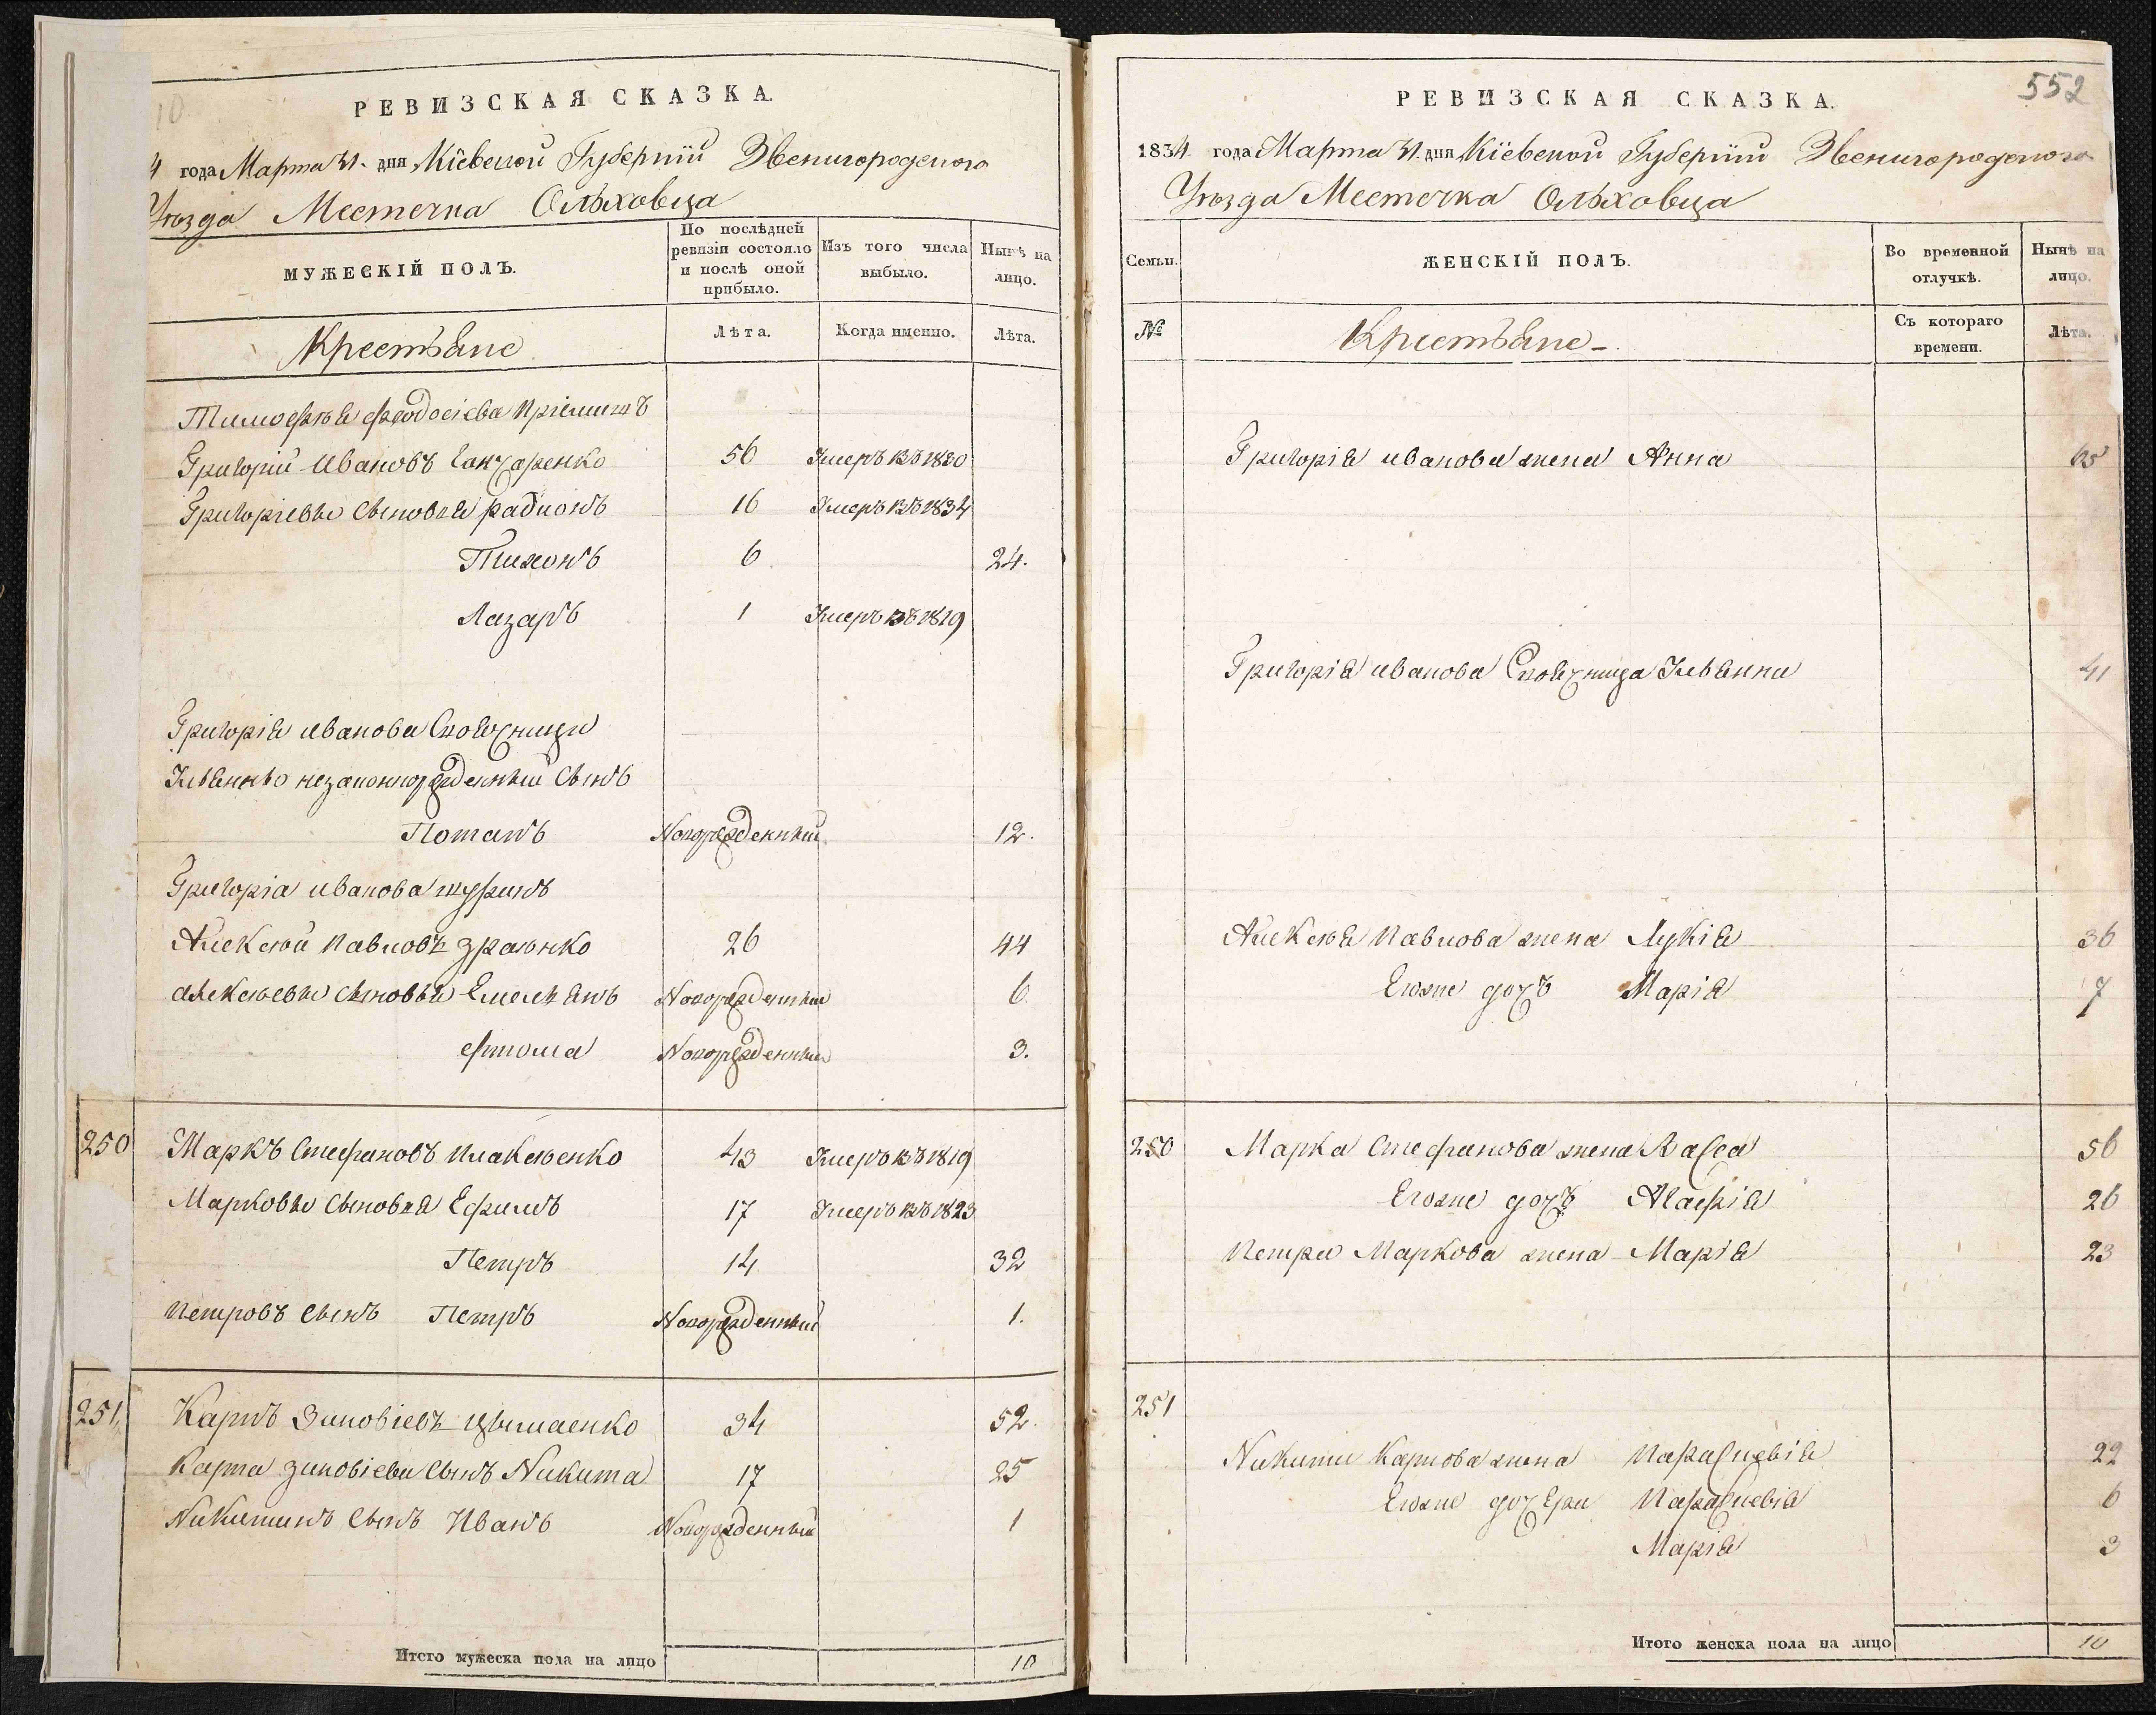 10
РЕВИЗСКАЯ СКАЗКА.
4 года Марта 31. дня Кіевской Губерніи Звенигородского
Уѣзда Местечка Ольховца
МУЖЕСКІЙ ПОЛЪ.
По послѣдней ревизіи состояло и послѣ оной прибыло.
Изъ того числа выбыло.
Нынѣ на лицо.
Крестьяне
Лѣта.
Когда именно.
Лѣта.
Тимофея Феодосіева Пріймитъ
Григорій Ивановъ 56 Умеръ въ 1830
Григоріевы Сыновья Радионъ 16 Умеръ въ 1834
Тихонъ 6 24.
Лазаръ 1 Умеръ въ 1819
Григорія иванова
Ульянны незаконнорожденный Сынъ
Потапъ Новорожденный 12.
Григоріа иванова шуринъ
Алексѣй Павловъ 26 44
алексѣевы сыновья Емельянъ Новорожденный 6
Новорожденный 3.
250 Маркъ Стефановъ Плаксѣенко 43 Умеръ въ 1819
Марковы Сыновья Ефимъ 17 Умеръ въ 1823
Петръ 14 32
Петровъ Сынъ Петръ Новорожденный 1.
251 Карпъ Зиновіевъ Цымаенко 34 52.
Карпа зиновіева Сынъ Никита 17 25
Никитинъ Сынъ Иванъ Новорожденный 1
Итого мужеска пола на лицо 10
552
РЕВИЗСКАЯ СКАЗКА.
1834 года Марта 31. дня Кіевской Губерніи Звенигородского
Уѣзда Местечка Ольховца
Семьи.
ЖЕНСКІЙ ПОЛЪ.
Во временной отлучкѣ.
Нынѣ на лицо.
№
Крестьяне
Съ котораго времени.
Лѣта.
Григорія иванова жена Анна 65
Григорія иванова Ульянна 41
Алексѣя Павлова жена Лукія 36
Егоже дочь Марія 7
250 Марка Стефанова жена Васса 56
Егоже дочь Агафія 26
Петра Маркова жена Марія 23
251
Никиты Карпова жена Парасцевія 22
Егоже дочери Парасцевія 6
Марія 3
Итого женска пола на лицо 10